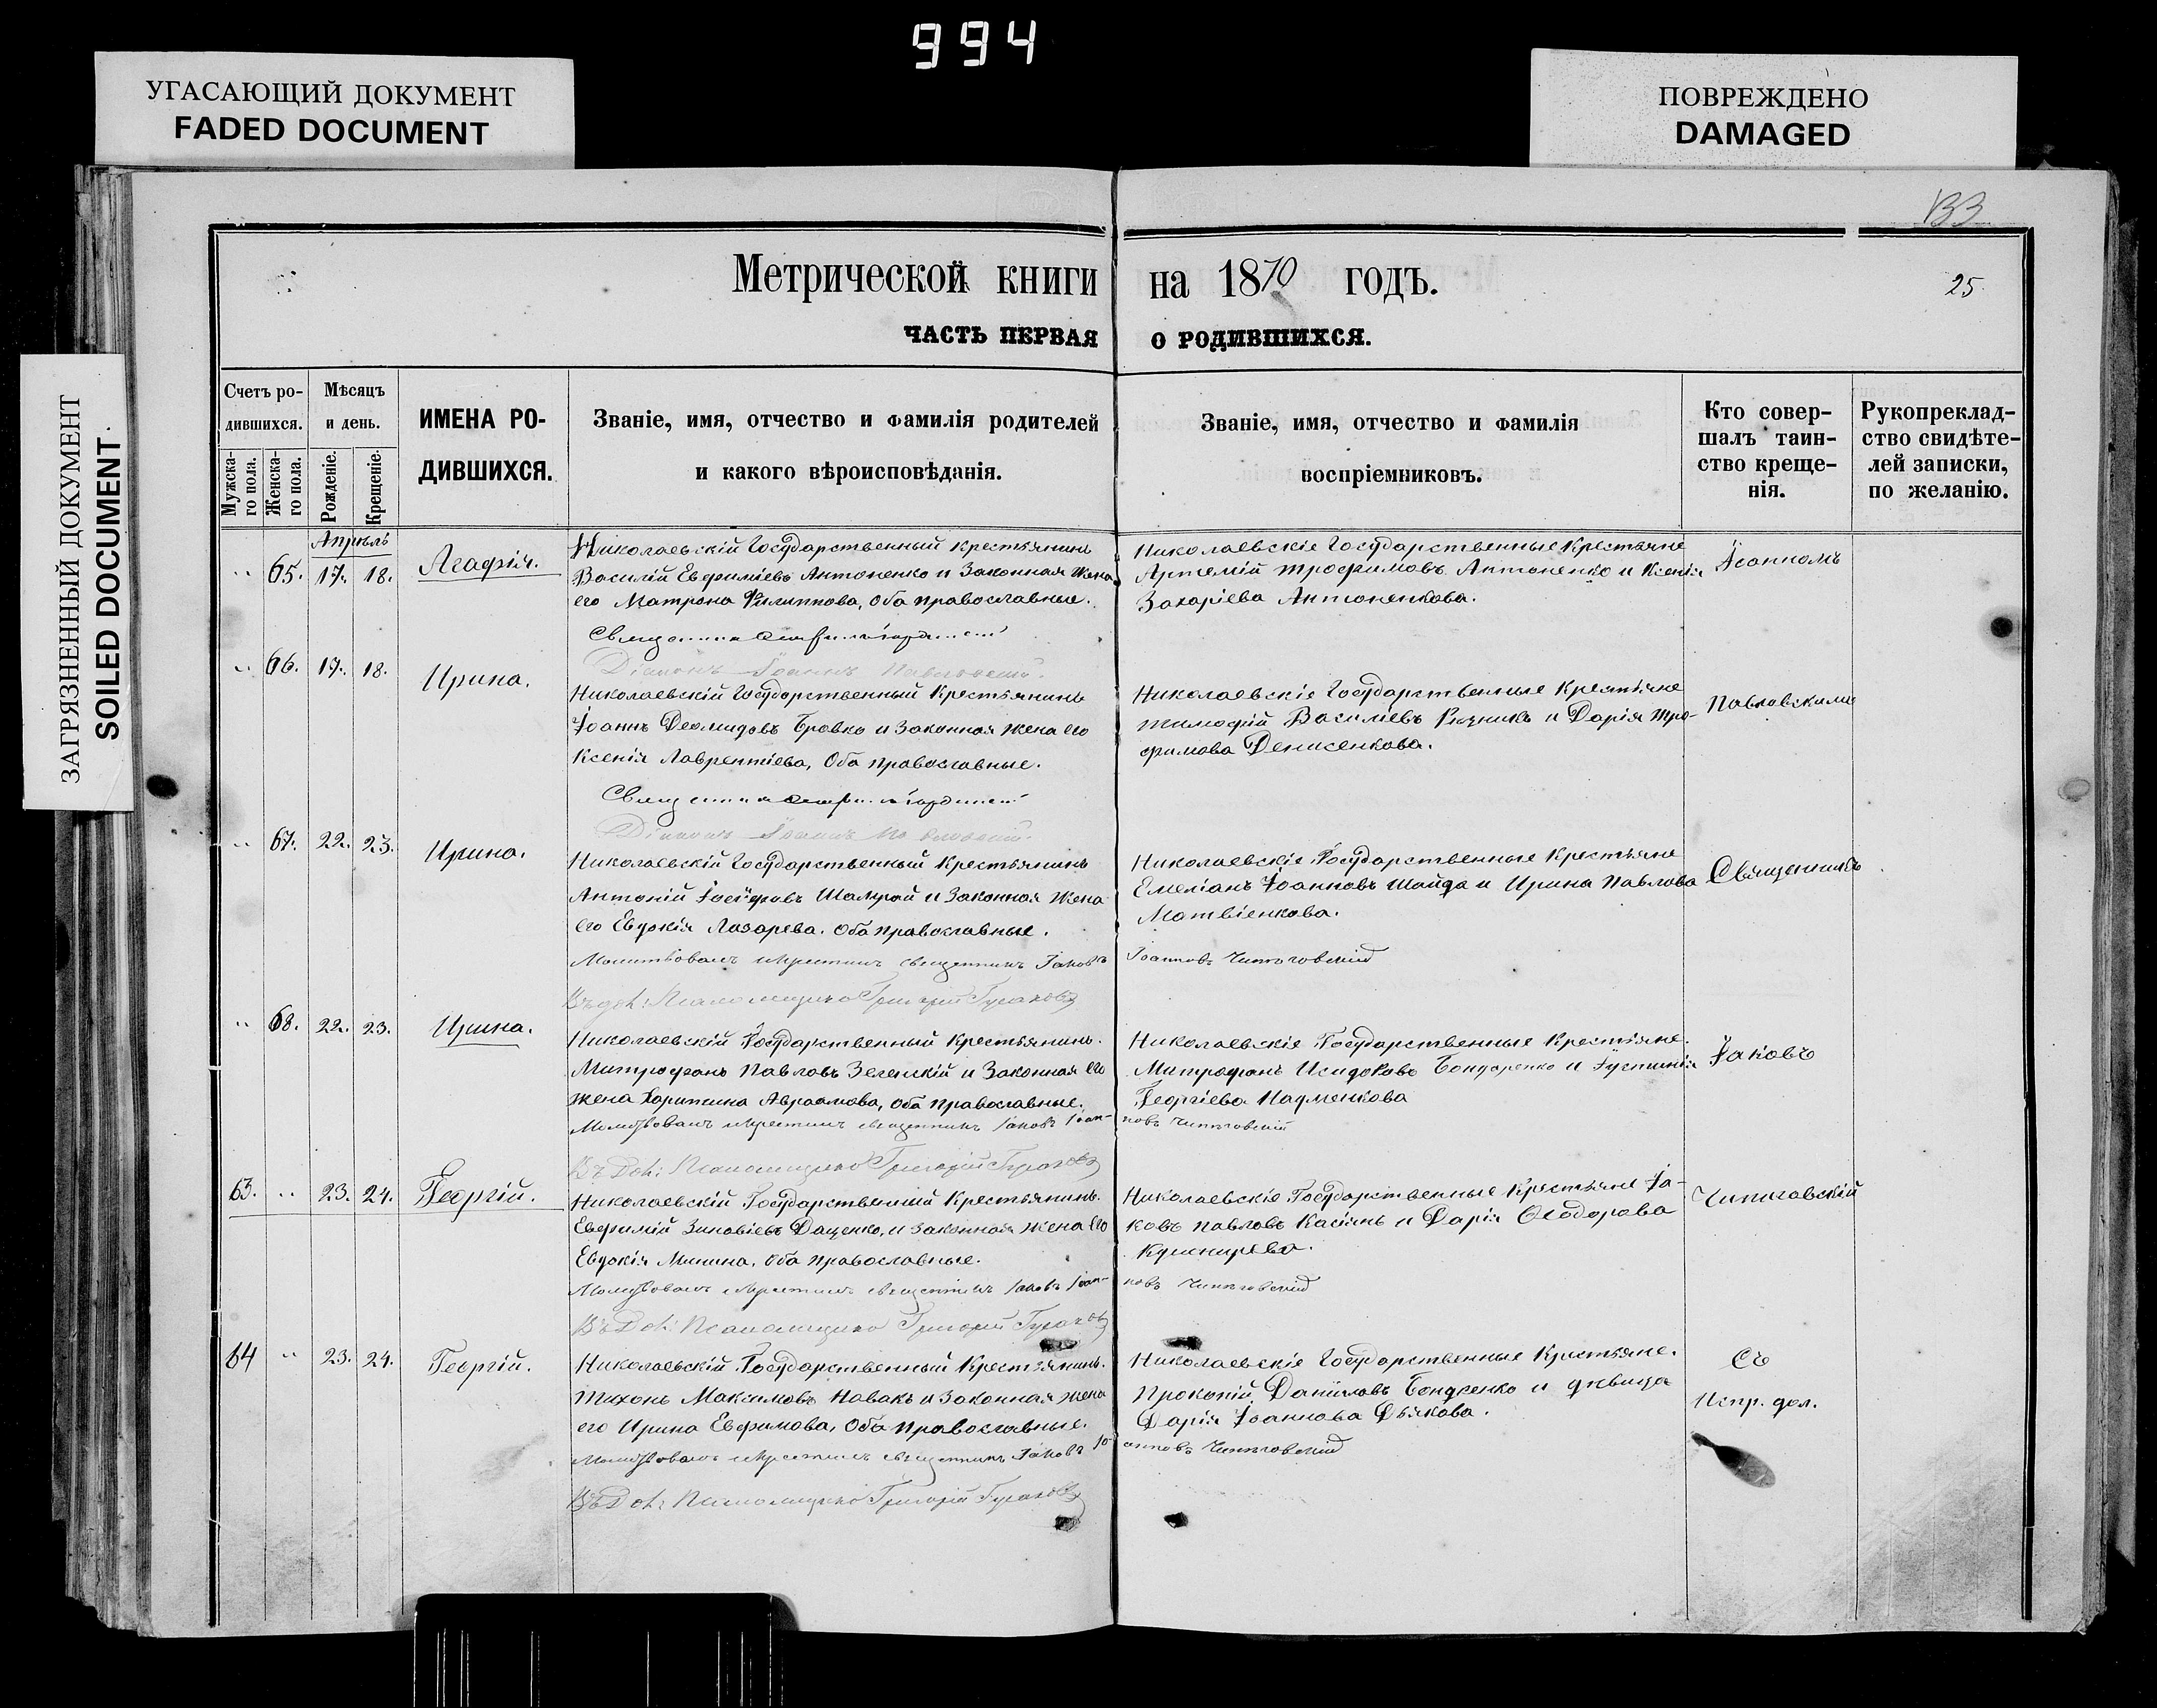 994
УГАСАЮЩИЙ ДОКУМЕНТ
FADED DOCUMENT
ПОВРЕЖДЕНО
DAMAGED
ЗАГРЯЗНЕННЫЙ ДОКУМЕНТ
SOILED DOCUMENT
133
Метрической книги на 1870 годъ.
25
ЧАСТЬ ПЕРВАЯ О РОДИВШИХСЯ.
Счетъ ро-
дившихся.
Мужска-
го пола.
Женска-
го пола.
Мѣсяцъ
и день.
Рожденіе.
Крещеніе.
ИМЕНА РО-
ДИВШИХСЯ.
Званіе, имя, отчество и фамилія родителей
и какого вѣроисповѣданія.
Званіе, имя, отчество и фамилія
воспріемниковъ.
Кто совер-
шалъ таин-
ство креще-
нія.
Рукопреклад-
ство свидѣте-
лей записки,
по желанію.
Апрѣль
„ 65. 17. 18. Агафія.
Николаевскій Государственный Крестьянинъ
Василій Евфиміевъ Антоненко и Законная Жена
его Матрона Филиппова, Оба православные.
Николаевскіе Государственные Крестьяне
Артемій Трофимовъ Антоненко и Ксенія
Захаріева Антоненкова.
Іоанномъ
Діаконъ Іоаннъ Павловскій.
„ 66. 17. 18. Ирина.
Николаевскій Государственный Крестьянинъ
Іоаннъ Деомидовъ Бровко и Законная Жена его
Ксенія Лаврентіева, Оба православные.
Николаевскіе Государственные Крестьяне
Тимофій Василіевъ Резникъ и Дарія Тро-
фимова Денисенкова.
Павловскимъ
Діаконъ Іоаннъ Павловскій.
„ 67. 22. 23. Ирина.
Николаевскій Государственный Крестьянинъ
Антоній Шамрай и Законная Жена
его Евдокія Лазарева. Оба православные.
Николаевскіе Государственные Крестьяне
Емеліанъ Іоанновъ Шайда и Ирина Павлова
Матвіенкова.
Священникъ
Молитвовалъ и крестилъ священникъ Іаковъ Іоанновъ
Григорій
„ 68. 22. 23. Ирина.
Николаевскій Государственный Крестьянинъ.
Митрофанъ Павловъ Зеленскій и Законная его
жена Харитина Авраамова, Оба православные.
Николаевскіе Государственные Крестьяне.
Митрофанъ Исидоровъ Бондаренко и Іустинія
Георгіева
Іаковъ
Молитвовалъ и крестилъ священникъ Іаковъ Іоан-
новъ
Григорій
63. „ 23. 24. Георгій.
Николаевскій Государственный Крестьянинъ.
Евфимій Зиновіевъ Даценко, и Законная Жена его
Евдокія Минина, Оба православные.
Николаевскіе Государственные Крестьяне Іа-
ковъ Павловъ Касіянъ и Дарія Ѳеодорова
Кушнирева.
Молитвовалъ и крестилъ священникъ Іаковъ Іоан-
новъ
Григорій
64 „ 23. 24. Георгій.
Николаевскій Государственный Крестьянинъ.
Тихонъ Максимовъ Новакъ и Законная жена
его Ирина Евфимова, Оба православные.
Николаевскіе Государственные Крестьяне.
Прокопій Даніиловъ и дѣвица
Дарія Іоаннова Дьякова.
Съ
Испр. дол.
Молитвовалъ и крестилъ священникъ Іаковъ Іо-
анновъ
Григорій